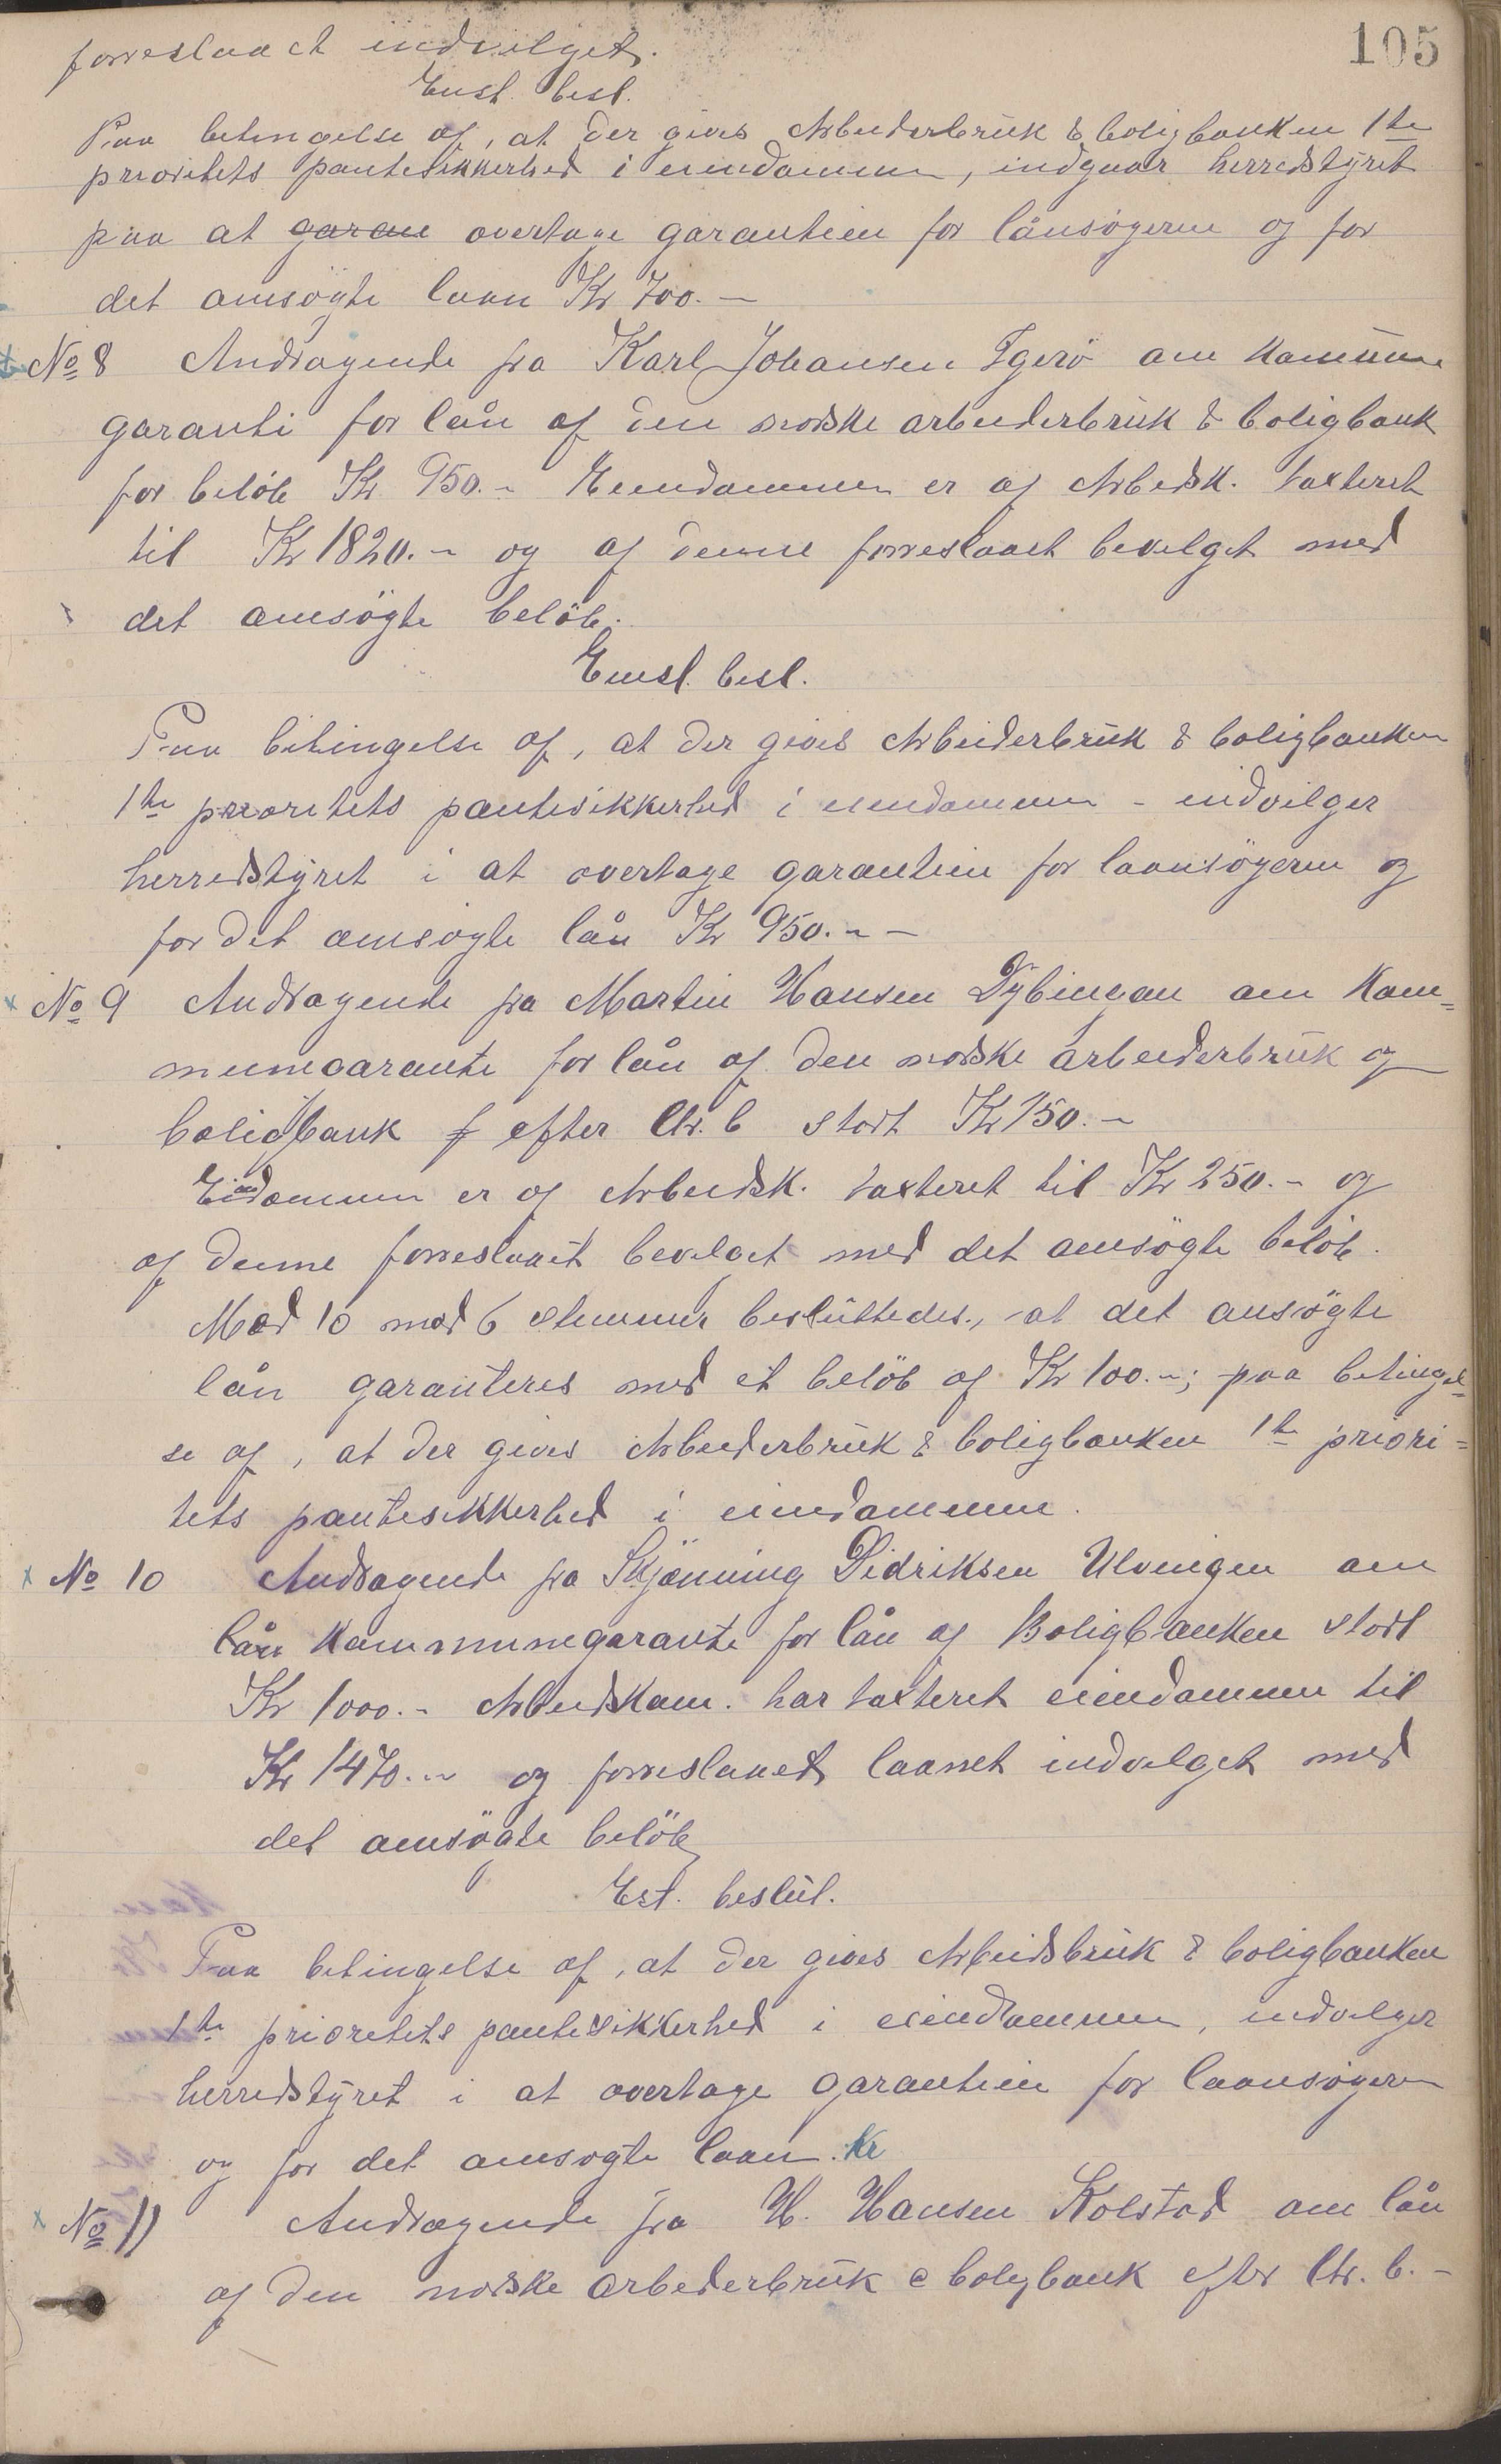 105
forreslaaet indvilget.
Enst. besl.
Paa betingelse af, at der gives Arbeiderbrük & boligbanken 1te
prioritets pantesikkerhed i eiendommen, indgaar herredstyret
paa at garan overtage garantien for lånsögeren og for
det ansögte laan Kr 700.—
No 8 Andragende fra Karl Johansen Igerö om Kommune
garanti for lån af den norske arbeiderbrük & boligbank
for belöb Kr. 950.- Eiendommen er af Arbeidsk. taxteret
til Kr 1820.- og af denne forreslaaet bevilget med
det ansögte belöb.
Enst. besl.
Paa betingelse af, at der gives Arbeiderbrük & boligbanken
1te prioritets pantesikkerhed i eiendommen - indvilger
herredstyret i at overtage garantien for laansögeren og
for det ansögte lån Kr 950.- —
No 9 Andragende fra Martin Hansen Dybingan om Kom=
munegaranti for lån af den norske arbeiderbrük og
boligbank f efter Ltr. b stort Kr 150.—
Eiendommen er af Arbeidsk. taxteret til Kr 250.- og
af denne forreslaaet bevilget med det ansögte belöb.
Med 10 mod 6 stemmer beslüttedes, at det ansögte
lån garanteres med et belöb af Kr 100.-; paa betingel=
se af, at der gives Arbeiderbrük & boligbanken 1te priori=
tets pantesikkerhed i eiendommen.
No 10 Andragende fra Skjönning Didriksen Ulvingen om
lån Kommunegaranti for lån af Boligbanken stort
Kr 1000.- Arbeidskom. har taxteret eiendommen til
Kr 1470.- og forreslaaet laanet indvilget med
det ansögte belöb
Est. beslüt.
Paa betingelse af, at der gives Arbeidsbrük & boligbanken
1te prioritets pantesikkerhed i eiendommen, indvilger
herredstyret i at overtage garantien for laansögeren
og for det ansögte laan. Kr
No 11 Andragende fra H. Hansen Kolstad om lån
af den norske arbeiderbrük & boligbank efter Ltr. b.-